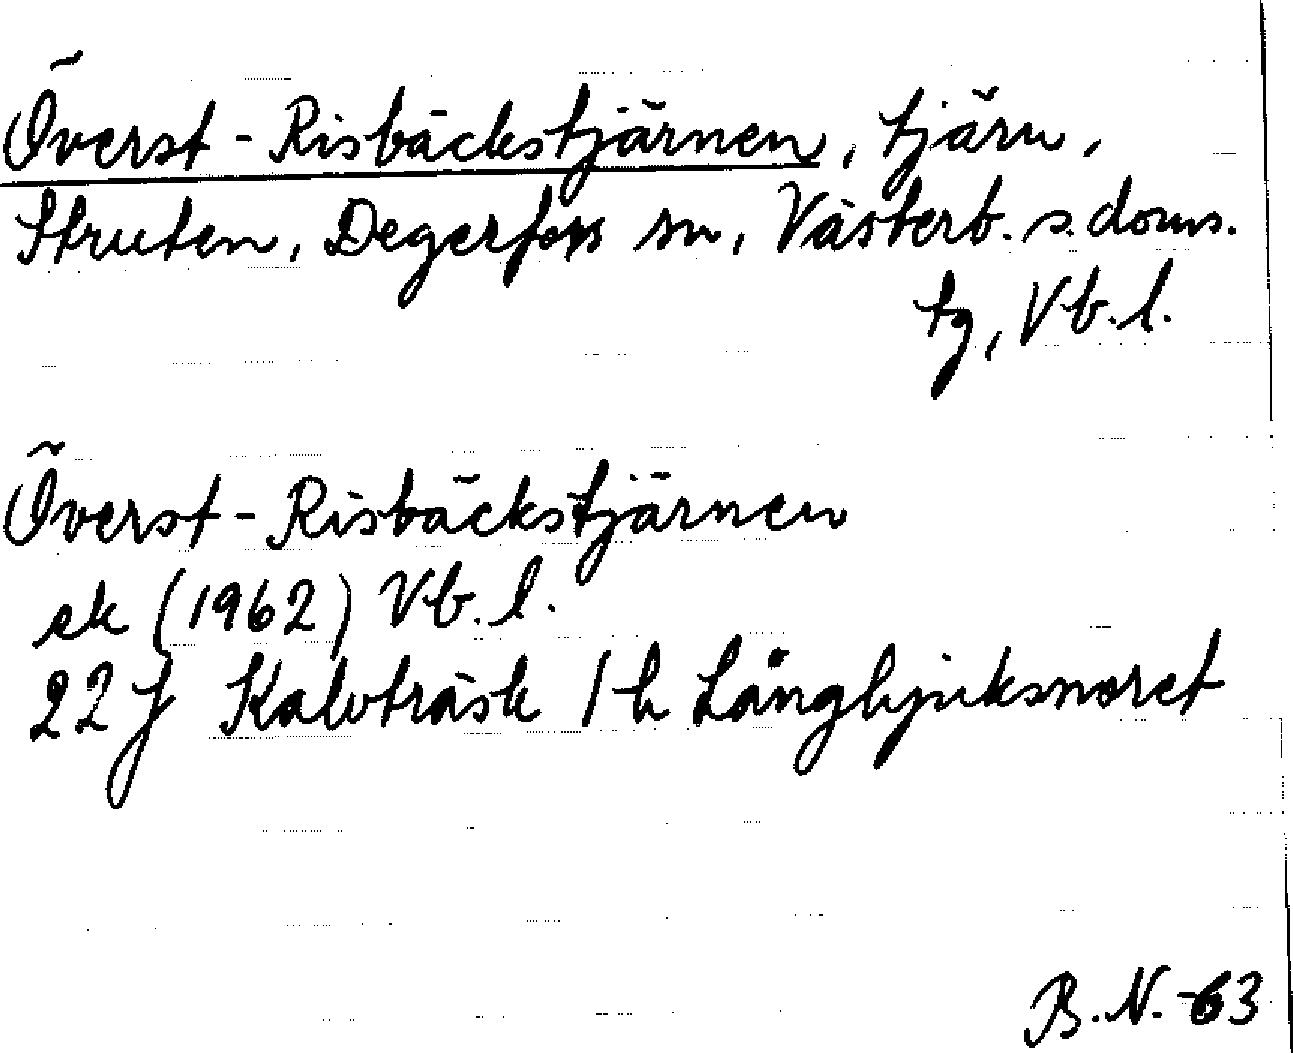 Överst-Risbäckstjärnen, tjärn,
Struten, Degerfors sn, Västerb. s. doms.
tg, Vb. l.
Överst-Risbäckstjärnen
ek (1962) Vb. l.
22 J Kalvträsk 1 h Långhjuksnoret
B. N. -63